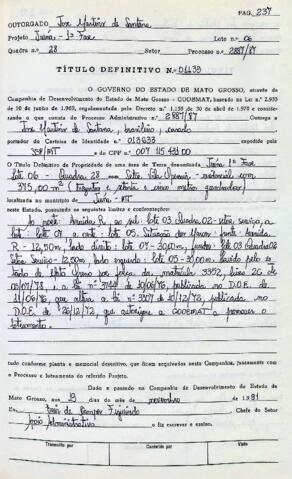 PAG. 237
OUTORGADO José Martins de Santana
Projeto Juína - 1ª Fase Lote n.o 06
Quadra n.o 28 Setor Processo n.o 2887/87
TÍTULO DEFINITIVO N.o 04133
O GOVERNO DO ESTADO DE MATO GROSSO, através da
Companhia de Desenvolvimento do Estado de Mato Grosso - CODEMAT, baseado na Lei n.o 2.933
de 10 de junho de 1969, regulamentada pelo Decreto n.o 1.138 de 30 de abril de 1970 e considerando
o que consta do Processo Administrativo n.o 2887/87 Outorga a
José Martins de Santana, brasileiro, casado
portador da Carteira de Identidade n.o 013633 expedida pela
SSP/MT do CPF n.o 007 115 491 00
O Título Definitivo de Propriedade de uma área de Terra denominada Juína 1ª Fase
lote 06 - Quadra 28 - Setor residencial com
375,00 m² (trezentos e setenta e cinco metros quadrados)
localizada no município de Juína - MT
neste Estado, possuindo os seguintes limites e confrontações:
ao norte: Avenida R. ao sul: lote 03 Quadra 02 - setor serviço, a
lote - 07 a oeste: lote 05. frente: Avenida
R - 12,50m, lado direito: lote - 07 - 30,00m, fundos: lote 03 Quadra 02
Setor Serviço - 12,50m, lado esquerdo: lote 05 - 30,00m.
tado de Mato Grosso por força da matrícula 3352, livro 2G de
a lei nº 3744 de 10/06/76, publicada no D.O.E. de
11/06/76, que altera a lei nº 3307 de 18/12/72, publicada no
D.O.E. de 26/12/72, que autoriza a CODEMAT a promover o
loteamento.
tudo conforme planta e memorial descritivo, que ficam arquivados nesta Companhia, juntamente com
o Processo e loteamento do referido Projeto.
Dado e passado na Companhia de Desenvolvimento do Estado de
Mato Grosso, aos 19 dias do mês de novembro de 1991
Eu, Figueiredo Chefe do Setor
Apoio Administrativo o fiz escrever e assino.
Transcrito por Conferido por Visto